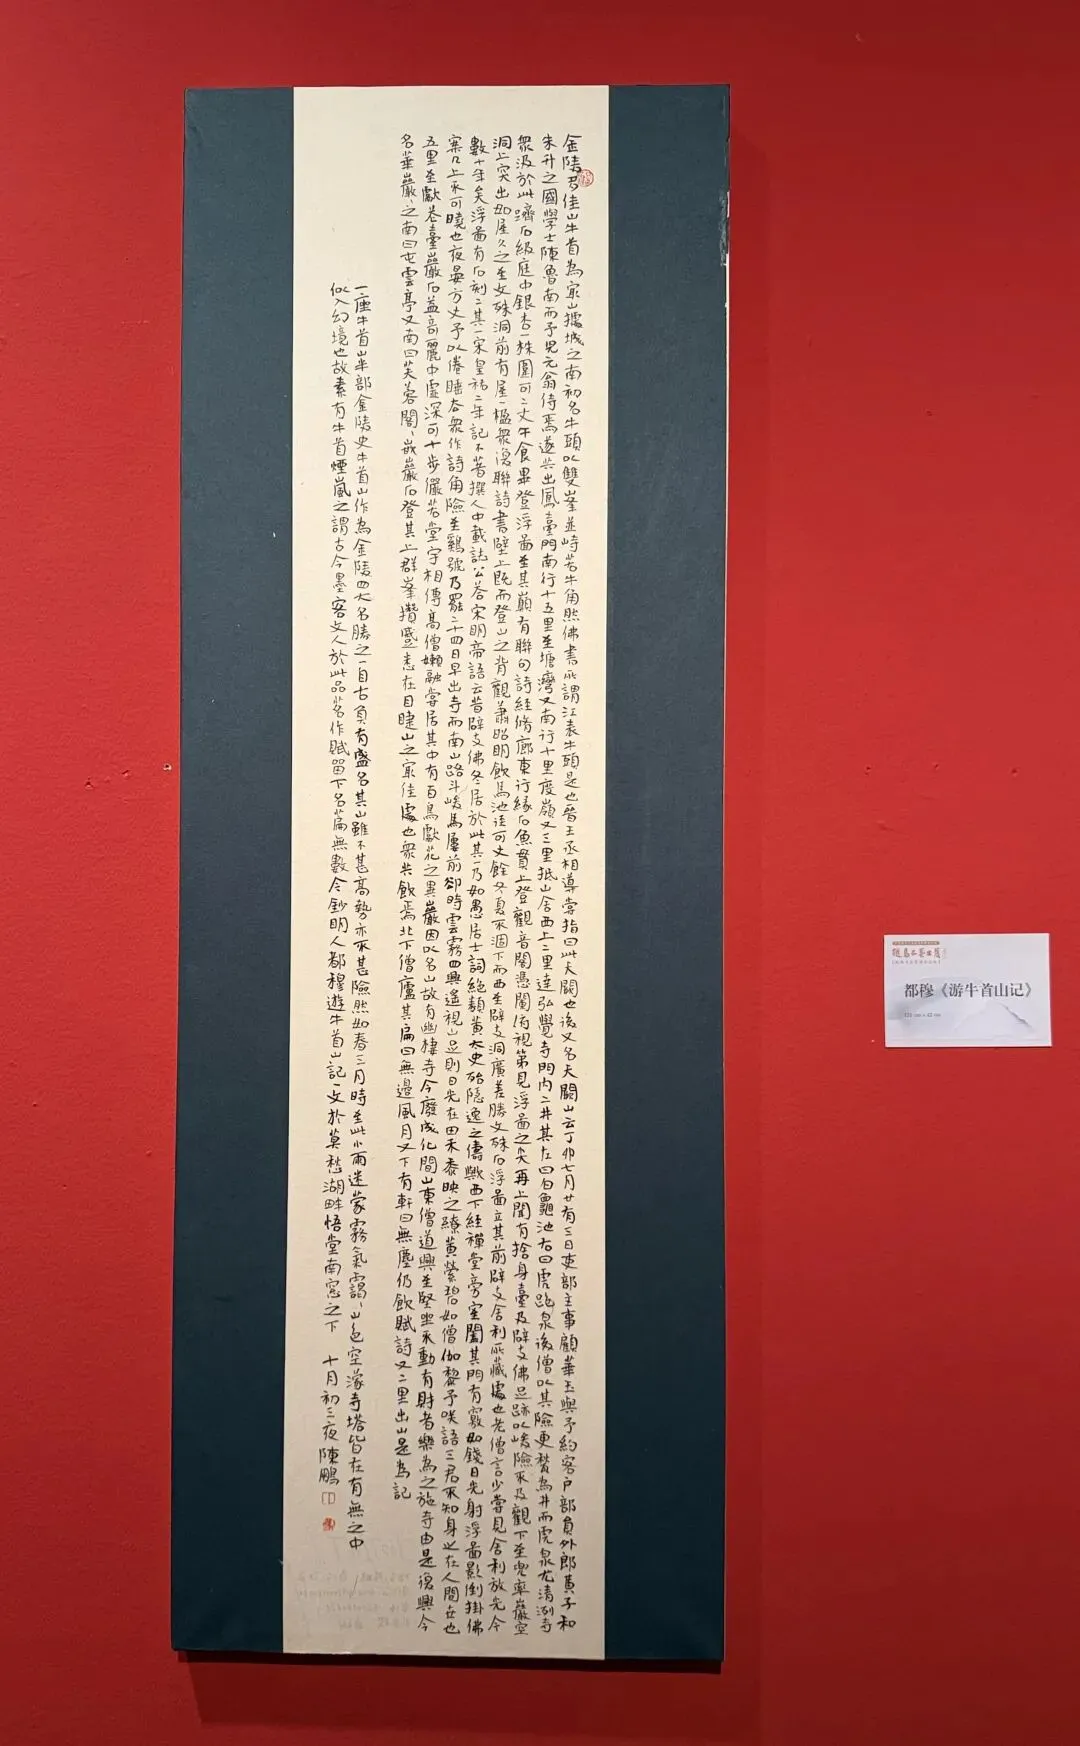 金陵多佳山牛首為冣山據城之南初名牛頭以雙峯並峙若牛角然佛書所謂江表牛頭是也晉王丞相導嘗指曰此天闕也後又名天闕山云丁卯七月廿有三日吏部主事顧華玉與予約客户部員外郎黄子和
朱升之國學士陳魯南而予兒元翁侍焉遂共出鳳臺門南行十五里至塘灣又南行十里度嶺又三里抵山舍西上二里達弘覺寺門内二井其左曰白龜池右曰虎跑泉後僧以其險更甃為井而虎泉尤清洌寺
衆汲於此躋石級庭中銀杏一株圍可二丈午食畢登浮啚至其巔有聯句詩經脩廊東行緣石魚貫上登觀音閣憑闌俯視第見浮啚之尖再上聞有捨身臺及辟支佛足跡以峻險不及觀下至兜率巖空
洞上突出如屋久之至文殊洞前有屋一楹衆復聯詩書壁上既而登山之背觀蕭昭明飲馬池徑可丈餘冬夏不涸下而西至辟支洞廣差勝文殊石浮啚立其前辟支舍利所藏處也老僧言少嘗見舍利放光今
數十年矣浮啚有石刻二其一宋皇祐二年記不著撰人中載誌公荅宋明帝語云昔辟支佛冬居於此其一乃如愚居士詞絶類黄太史殆隱逸之儔歟西下經禪堂旁室闔其門有竅如錢日光射浮啚影倒掛佛
案几上不可曉也夜晏方丈予以倦睡去衆作詩角險至鷄號乃罷二十四日早出寺而南山路斗峻馬屢前卻時雲霧四興遥視山足則日光在田禾黍映之繚黄縈碧如僧伽黎予咲語三君不知身之在人間世也
五里至獻花臺巖石益奇麗中虚深可十步儼若堂宇相傳高僧嬾融嘗居其中有百鳥獻花之異巖因以名山故有幽棲寺今廢成化間山東僧道興至堅坐不動有財者樂為之施寺由是復興今
名華嚴、之南曰屯雲亭又南曰芙蓉閣、嵌巖石登其上群峯攢蹙悉在目睫山之冣佳處也衆共飲焉北下僧廬其扁曰無邊風月又下有軒曰無塵仍飲賦詩又二里出山是為記
一座牛首山半部金陵史牛首山作為金陵四大名勝之一自古負有盛名其山雖不甚高勢亦不甚險然如春三月時至此小雨迷蒙霧氣靄、山色空濛寺塔皆在有無之中
似入幻境也故素有牛首煙嵐之謂古今墨客文人於此品茗作賦留下名篇無數今鈔明人都穆遊牛首山記一文於莫愁湖畔悟堂南窓之下 十月初三夜陳鵬
都穆《游牛首山记》